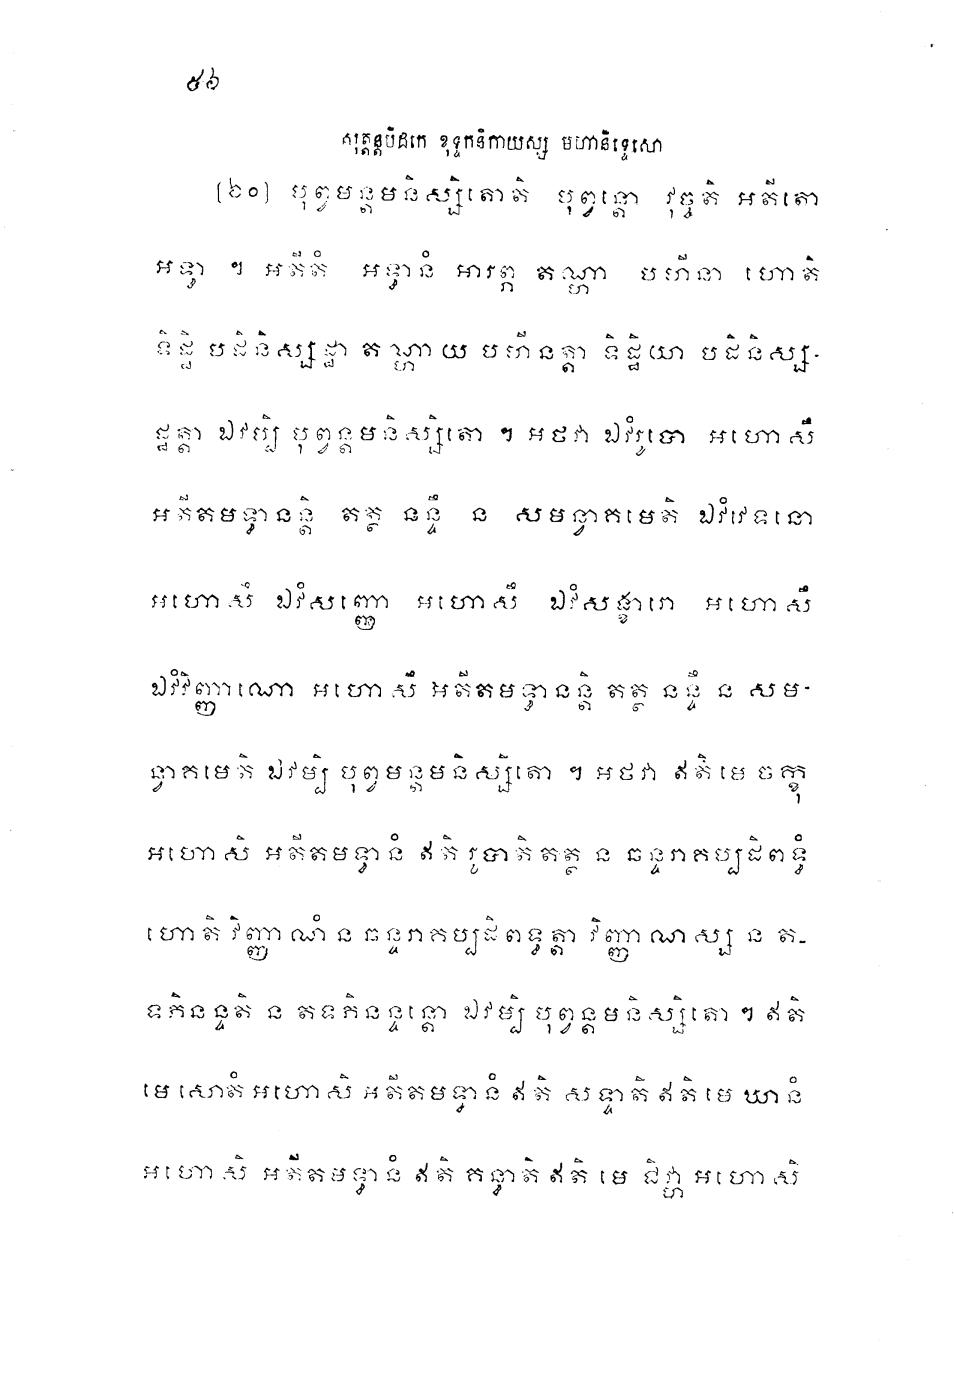 ៥៦
សុត្តន្តបិដកេ ខុទ្ទកនិកាយស្ស មហានិទ្ទេសោ
[៦០] បុព្វមន្តមនិស្សិតោតិ បុព្វន្តោ វុច្ចតិ អតីតោ
អទ្ធា ។ អតីតំ អទ្ធានំ អារព្ភ តណ្ហា បហីនា ហោតិ
ទិដ្ឋិ បដិនិស្សដ្ឋា តណ្ហាយ បហីនត្តា ទិដ្ឋិយា បដិនិស្ស-
ដ្ឋត្តា ឯវម្បិ បុព្វន្តមនិស្សិតោ ។ អថវា ឯវំរូបោ អហោសឹ
អតីតមទ្ធានន្តិ តត្ថ នន្ទឹ ន សមន្វាគមេតិ ឯវំវេទនោ
អហោសឹ ឯវំសញ្ញោ អហោសឹ ឯវំសង្ខារោ អហោសឹ
ឯវំវិញ្ញាណោ អហោសឹ អតីតមទ្ធានន្តិ តត្ថ នន្ទឹ ន សម-
ន្វាគមេតិ ឯវម្បិ បុព្វមន្តមនិស្សិតោ ។ អថវា ឥតិ មេ ចក្ខុ
អហោសិ អតីតមទ្ធានំ ឥតិ រូបាតិ តត្ថ ន ឆន្ទរាគប្បដិពទ្ធំ
ហោតិ វិញ្ញាណំ ន ឆន្ទរាគប្បដិពទ្ធត្តា វិញ្ញាណស្ស ន ត-
ទភិនន្ទតិ ន តទភិនន្ទន្តោ ឯវម្បិ បុព្វន្តមនិស្សិតោ ។ ឥតិ
មេ សោតំ អហោសិ អតីតមទ្ធានំ ឥតិ សទ្ទាតិ ឥតិ មេ ឃានំ
អហោសិ អតីតមទ្ធានំ ឥតិ គន្ធាតិ ឥតិ មេ ជិវ្ហា អហោសិ